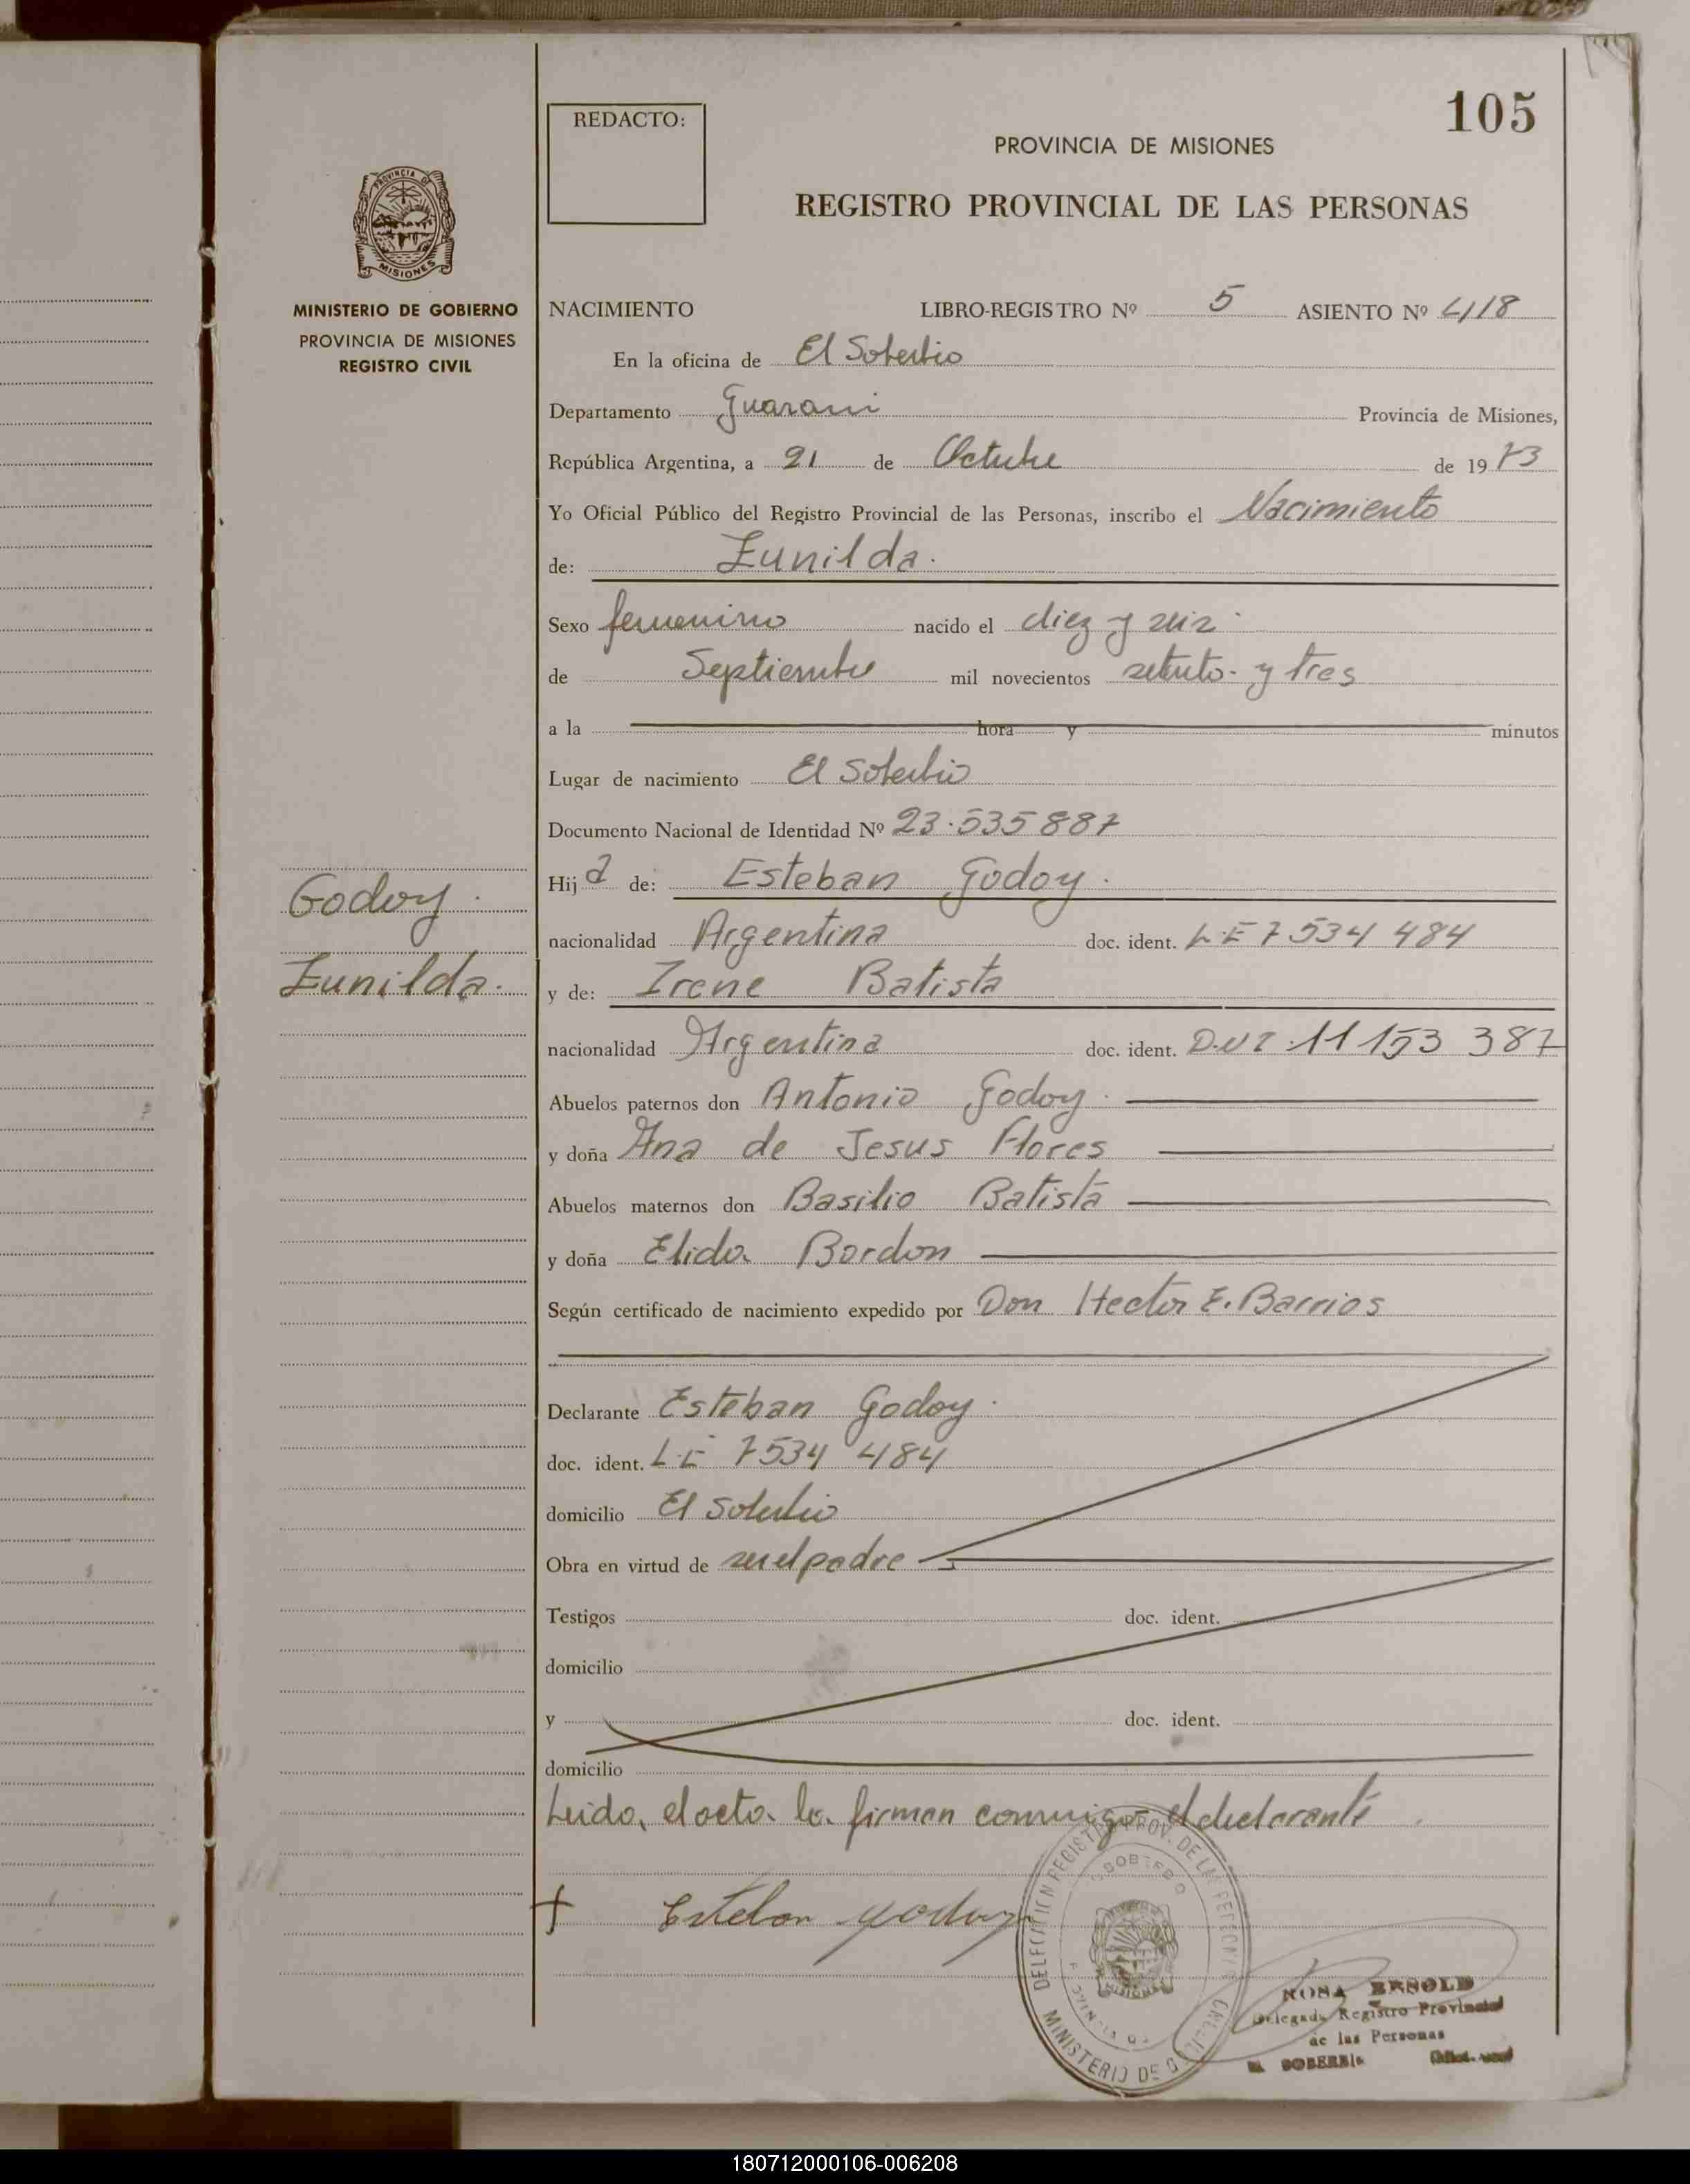 105
REDACTO:
PROVINCIA DE MISIONES
REGISTRO PROVINCIAL DE LAS PERSONAS
PROVINCIA DE
MISIONES
MINISTERIO DE GOBIERNO
PROVINCIA DE MISIONES
REGISTRO CIVIL
NACIMIENTO LIBRO-REGISTRO Nº 5 ASIENTO Nº 418
En la oficina de El Soberbio
Departamento Guarani Provincia de Misiones,
República Argentina, a 21 de Octubre de 1973
Yo Oficial Público del Registro Provincial de las Personas, inscribo el Nacimiento
de: Zunilda.
Sexo femenino nacido el diez y seis
de Septiembre mil novecientos setenta y tres
a la hora y minutos
Lugar de nacimiento El Soberbio
Documento Nacional de Identidad Nº 23.535887
Hija de: Esteban Godoy.
Godoy.
nacionalidad Argentina doc. ident. L E 7534 484
Zunilda.
y de: Irene Batista
nacionalidad Argentina doc. ident. D.N.I. 11 153 387
Abuelos paternos don Antonio Godoy.
y doña Ana de Jesus Flores
Abuelos maternos don Basilio Batista
y doña Elida Bordon
Según certificado de nacimiento expedido por Don Hector E. Barrios
Declarante Esteban Godoy.
doc. ident. L.E 7534 484
domicilio El Soberbio
Obra en virtud de ser el padre
Testigos doc. ident.
domicilio
y doc. ident.
domicilio
Leido, el acta la firman conmigo el declarante.
Esteban Godoy
DELEGACION REGISTRO PROV. DE LAS PERSONAS
MINISTERIO DE GOBIERNO
ROSA BESOLD
Delegada Registro Provincial
de las Personas
EL SOBERBIO
180712000106-006208